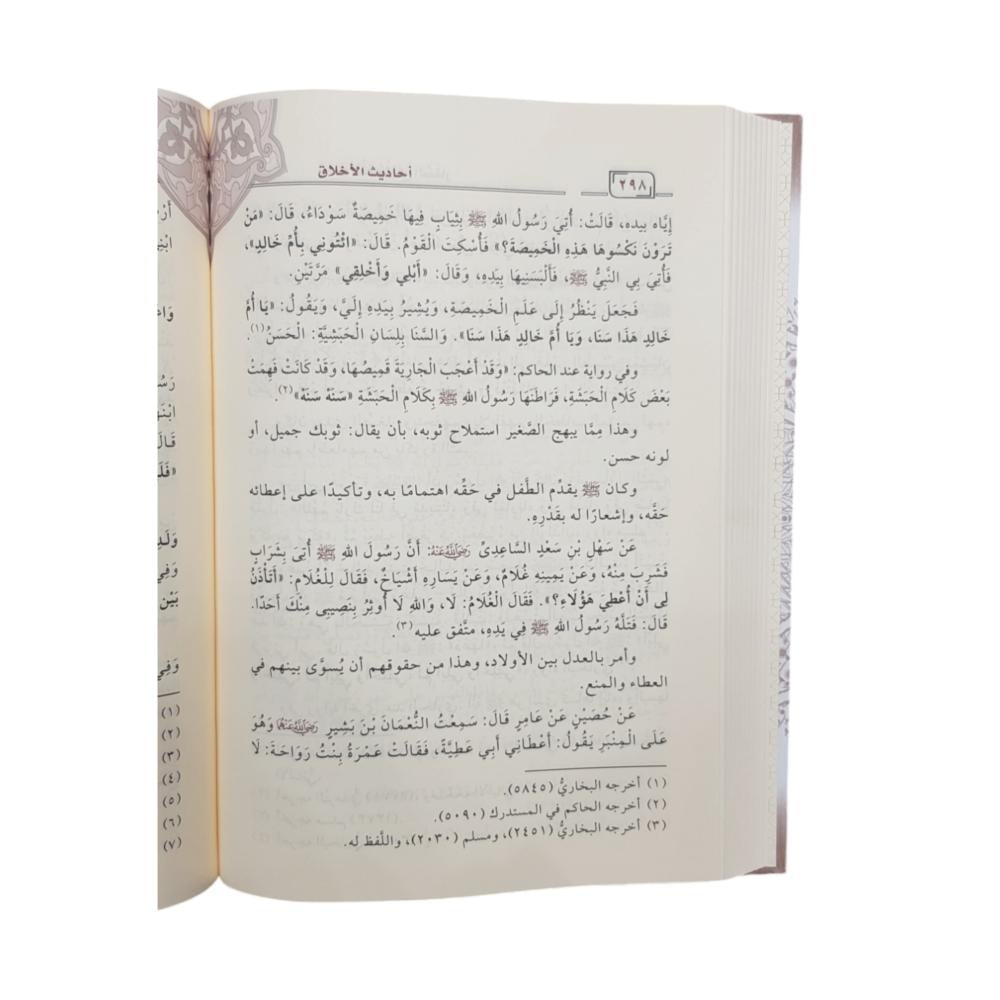 ٢٩٨
أحاديث الأخلاق
إيَّاه بيده، قَالَتْ: أُتِيَ رَسُولُ اللهِ ﷺ بِثِيَابٍ فِيهَا خَمِيصَةٌ سَوْدَاءُ، قَالَ: «مَنْ
تَرَوْنَ نَكْسُوهَا هَذِهِ الْخَمِيصَةَ؟» فَأُسْكِتَ الْقَوْمُ. قَالَ: «ائْتُونِي بِأُمِّ خَالِدٍ»،
فَأُتِيَ بِي النَّبِيُّ ﷺ، فَأَلْبَسَنِيهَا بِيَدِهِ، وَقَالَ: «أَبْلِي وَأَخْلِقِي» مَرَّتَيْنِ.
فَجَعَلَ يَنْظُرُ إِلَى عَلَمِ الْخَمِيصَةِ، وَيُشِيرُ بِيَدِهِ إِلَيَّ، وَيَقُولُ: «يَا أُمَّ
خَالِدٍ هَذَا سَنَا، وَيَا أُمَّ خَالِدٍ هَذَا سَنَا». وَالسَّنَا بِلِسَانِ الْحَبَشِيَّةِ: الْحَسَنُ(١).
وفي رواية عند الحاكم: «وَقَدْ أَعْجَبَ الْجَارِيَةَ قَمِيصُهَا، وَقَدْ كَانَتْ فَهِمَتْ
بَعْضَ كَلَامِ الْحَبَشَةِ، فَرَاطَنَهَا رَسُولُ اللهِ ﷺ بِكَلَامِ الْحَبَشَةِ «سَنَهْ سَنَهْ»(٢).
وهذا مِمَّا يبهج الصَّغير استملاح ثوبه، بأن يقال: ثوبك جميل، أو
لونه حسن.
وكان ﷺ يقدِّم الطَّفل في حَقِّه اهتمامًا به، وتأكيدًا على إعطائه
حَقَّه، وإشعارًا له بقَدْرِهِ.
عَنْ سَهْلِ بْنِ سَعْدٍ السَّاعِدِيِّ رَضِيَاللَّهُعَنْهُ: أَنَّ رَسُولَ اللهِ ﷺ أُتِيَ بِشَرَابٍ
فَشَرِبَ مِنْهُ، وَعَنْ يَمِينِهِ غُلَامٌ، وَعَنْ يَسَارِهِ أَشْيَاخٌ، فَقَالَ لِلْغُلَامِ: «أَتَأْذَنُ
لِي أَنْ أُعْطِيَ هَؤُلَاءِ؟». فَقَالَ الْغُلَامُ: لَا، وَاللهِ لَا أُوثِرُ بِنَصِيبِي مِنْكَ أَحَدًا.
قَالَ: فَتَلَّهُ رَسُولُ اللهِ ﷺ فِي يَدِهِ، متَّفق عليه(٣).
وأمر بالعدل بين الأولاد، وهذا من حقوقهم أن يُسوَّى بينهم في
العطاء والمنع.
عَنْ حُصَيْنٍ عَنْ عَامِرٍ قَالَ: سَمِعْتُ النُّعْمَانَ بْنَ بَشِيرٍ رَضِيَاللَّهُعَنْهُمَا وَهُوَ
عَلَى الْمِنْبَرِ يَقُولُ: أَعْطَانِي أَبِي عَطِيَّةً، فَقَالَتْ عَمْرَةُ بِنْتُ رَوَاحَةَ: لَا
(١) أخرجه البخاريُّ (٥٨٤٥).
(٢) أخرجه الحاكم في المستدرك (٥٠٩٠).
(٣) أخرجه البخاريُّ (٢٤٥١)، ومسلم (٢٠٣٠)، واللَّفظ له.
(١)
(٢)
(٣)
(٤)
(٥)
(٦)
(٧)